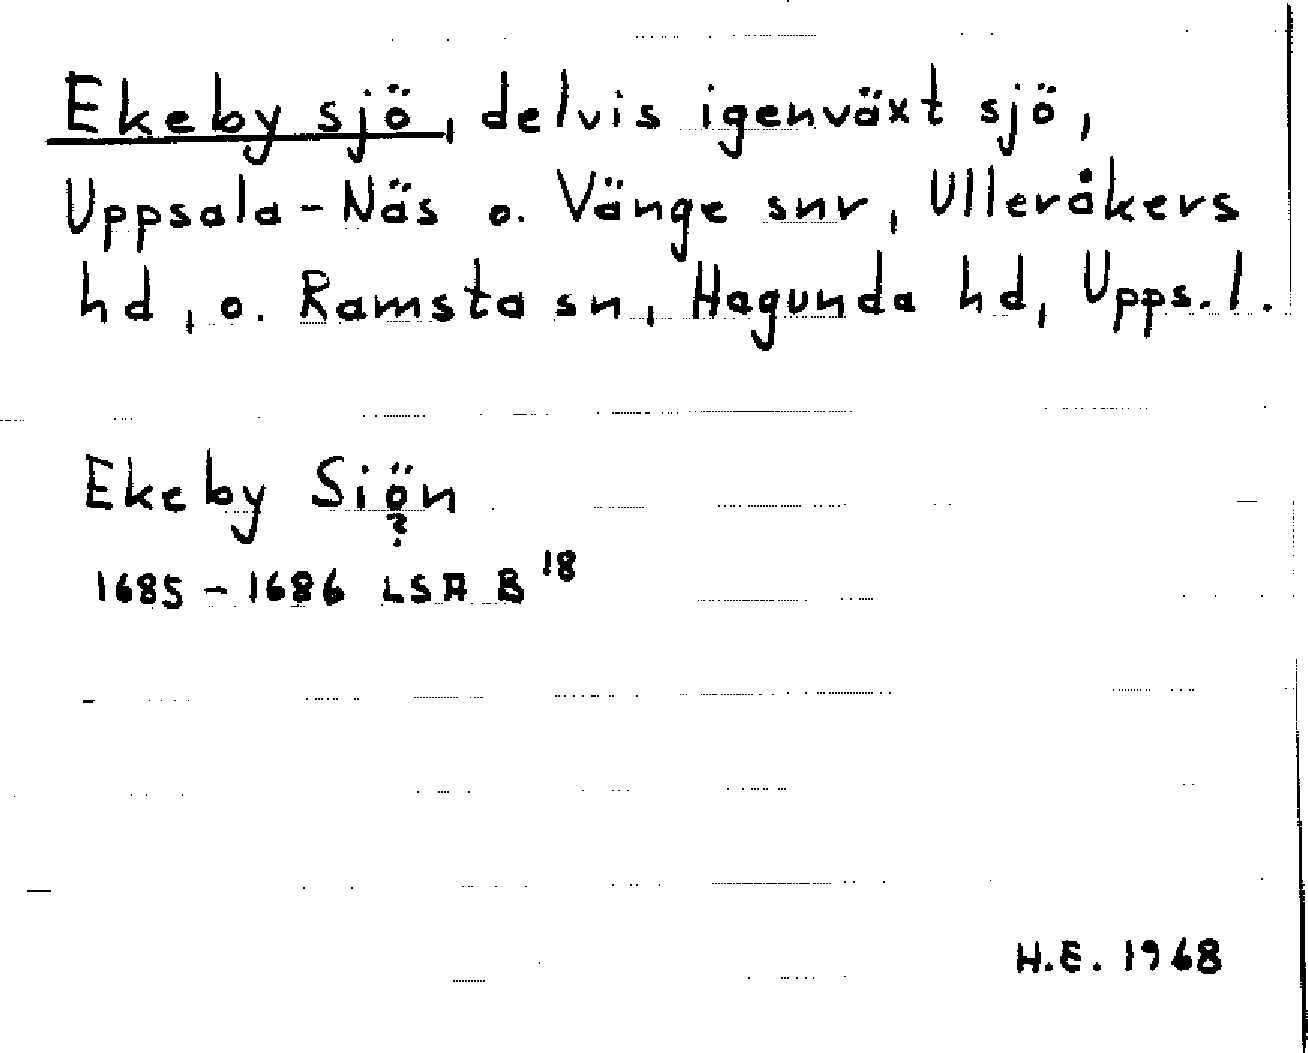 Ekeby sjö, delvis igenväxt sjö,
Uppsala-Näs o. Vänge snr, Ulleråkers
hd, o. Ramsta sn, Hagunda hd, Upps.l.
Ekeby Siön
?
1685 - 1686 LSA B 18
H.E. 1968